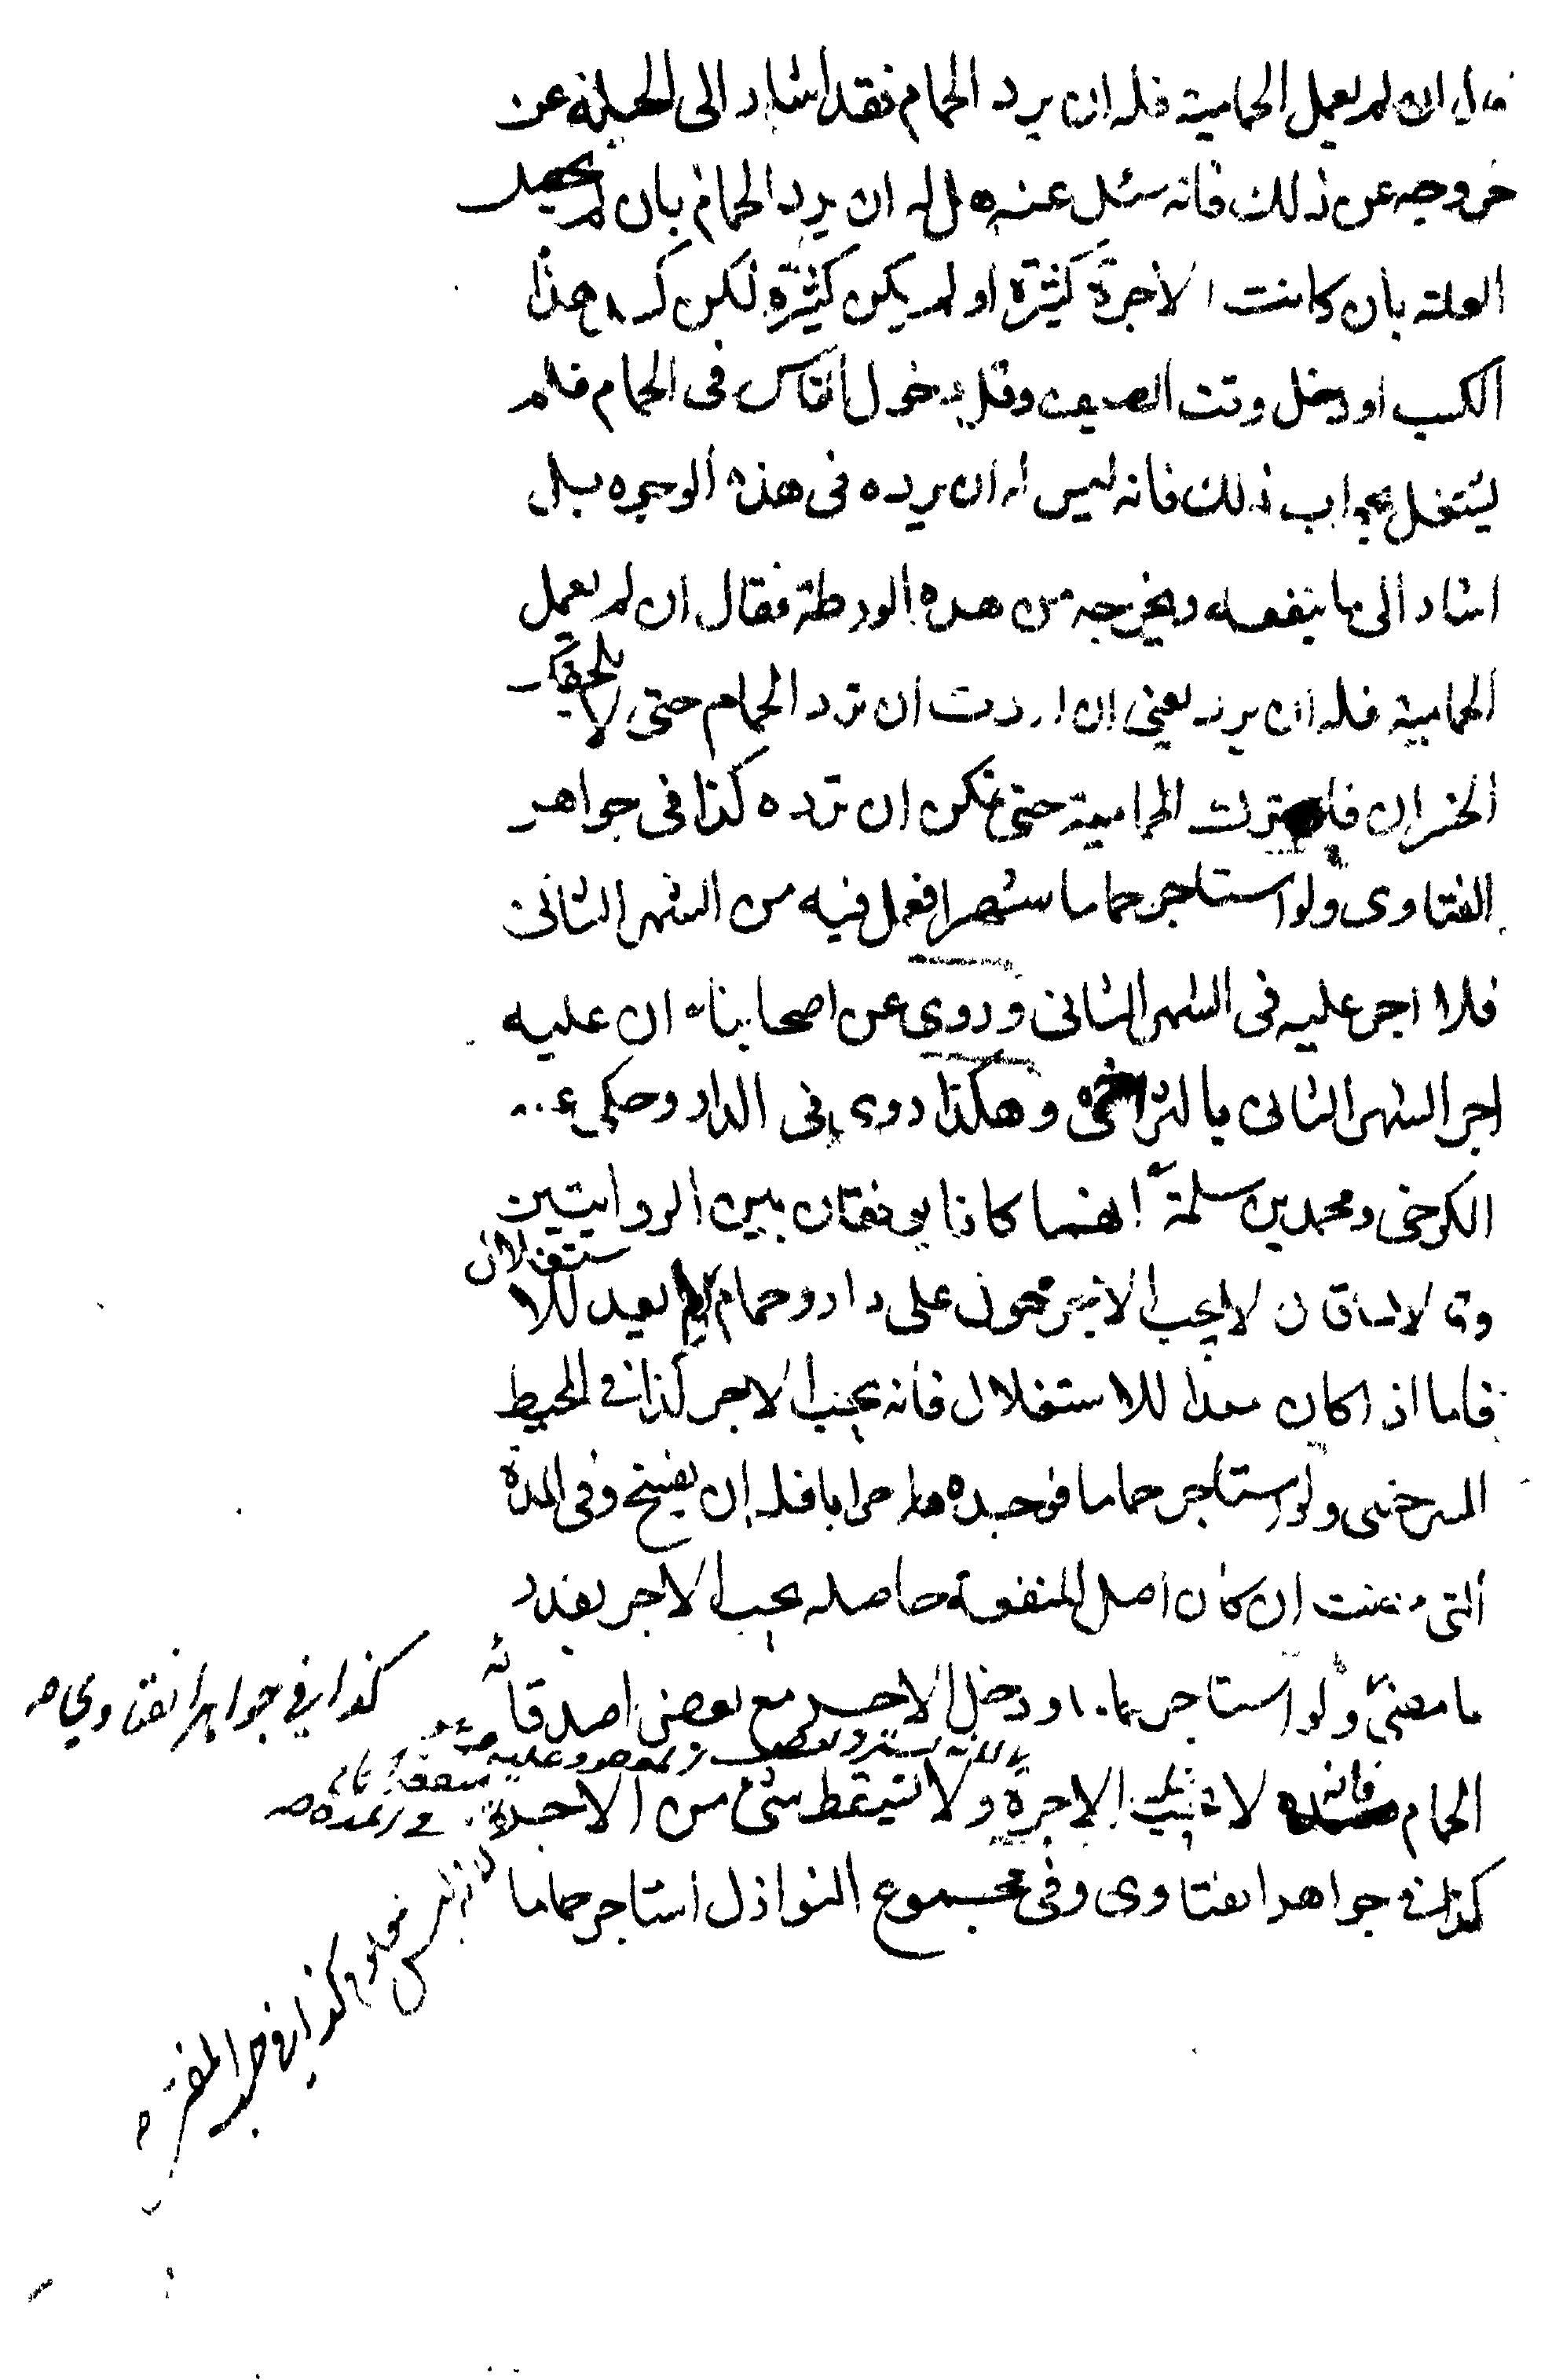 قال ان لم يعمل الحمامية فله ان يرد الحمام فقد اشار الى الحيلة عن
خروجه عن ذلك فانه سئل عنه هل له ان يرد الحمام بان لم يحصل
الغلة بان كانت الاجرة كثيرة او لم يكن كثيرة لكن كسد هذا
الكسب او دخل وقت الصيف وقل دخول الناس فى الحمام فلم
يشتغل بجواب ذلك فانه ليس له ان يرده فى هذه الوجوه بل
اشار الى ما ينفعه ويخرجه من هذه الورطة فقال ان لم يعمل
الحمامية فله ان يرد يعنى ان اردت ان ترد الحمام حتى لا يلحقك
الخسران فاترك الحمامية حتى يمكن ان ترده كذا فى جواهر
الفتاوى ولو استاجر حماما شهرا فعمل فيه من الشهر الثانى
فلا اجر عليه فى الشهر الثانى وروى عن اصحابنا ان عليه
اجر الشهر الثانى وهكذا روى فى الدار وحكى عن
الكرخى ومحمد بن سلمة انهما كانا يوفقان بين الروايتين
ويقولان لا يجب الاجر محمول على دار وحمام لم يعد للاستغلال
فاما اذا كان معدا للاستغلال فانه يجب الاجر كذا فى المحيط
السرخسى ولو استاجر حماما فوجده خرابا فله ان يفسخ وفى المدة
التى مضت ان كان اصل المنفعة حاصله يجب الاجر بقدر
ما مضى ولو استاجر حماما ودخل الاجر مع بعض اصدقائه
كذا فى جواهر الفتاوى صح
الحمام فانه لا تجب الاجرة ولا يسقط شئ من الاجرة
كذا فى جواهر الفتاوى وفى مجموع النوازل استاجر حماما